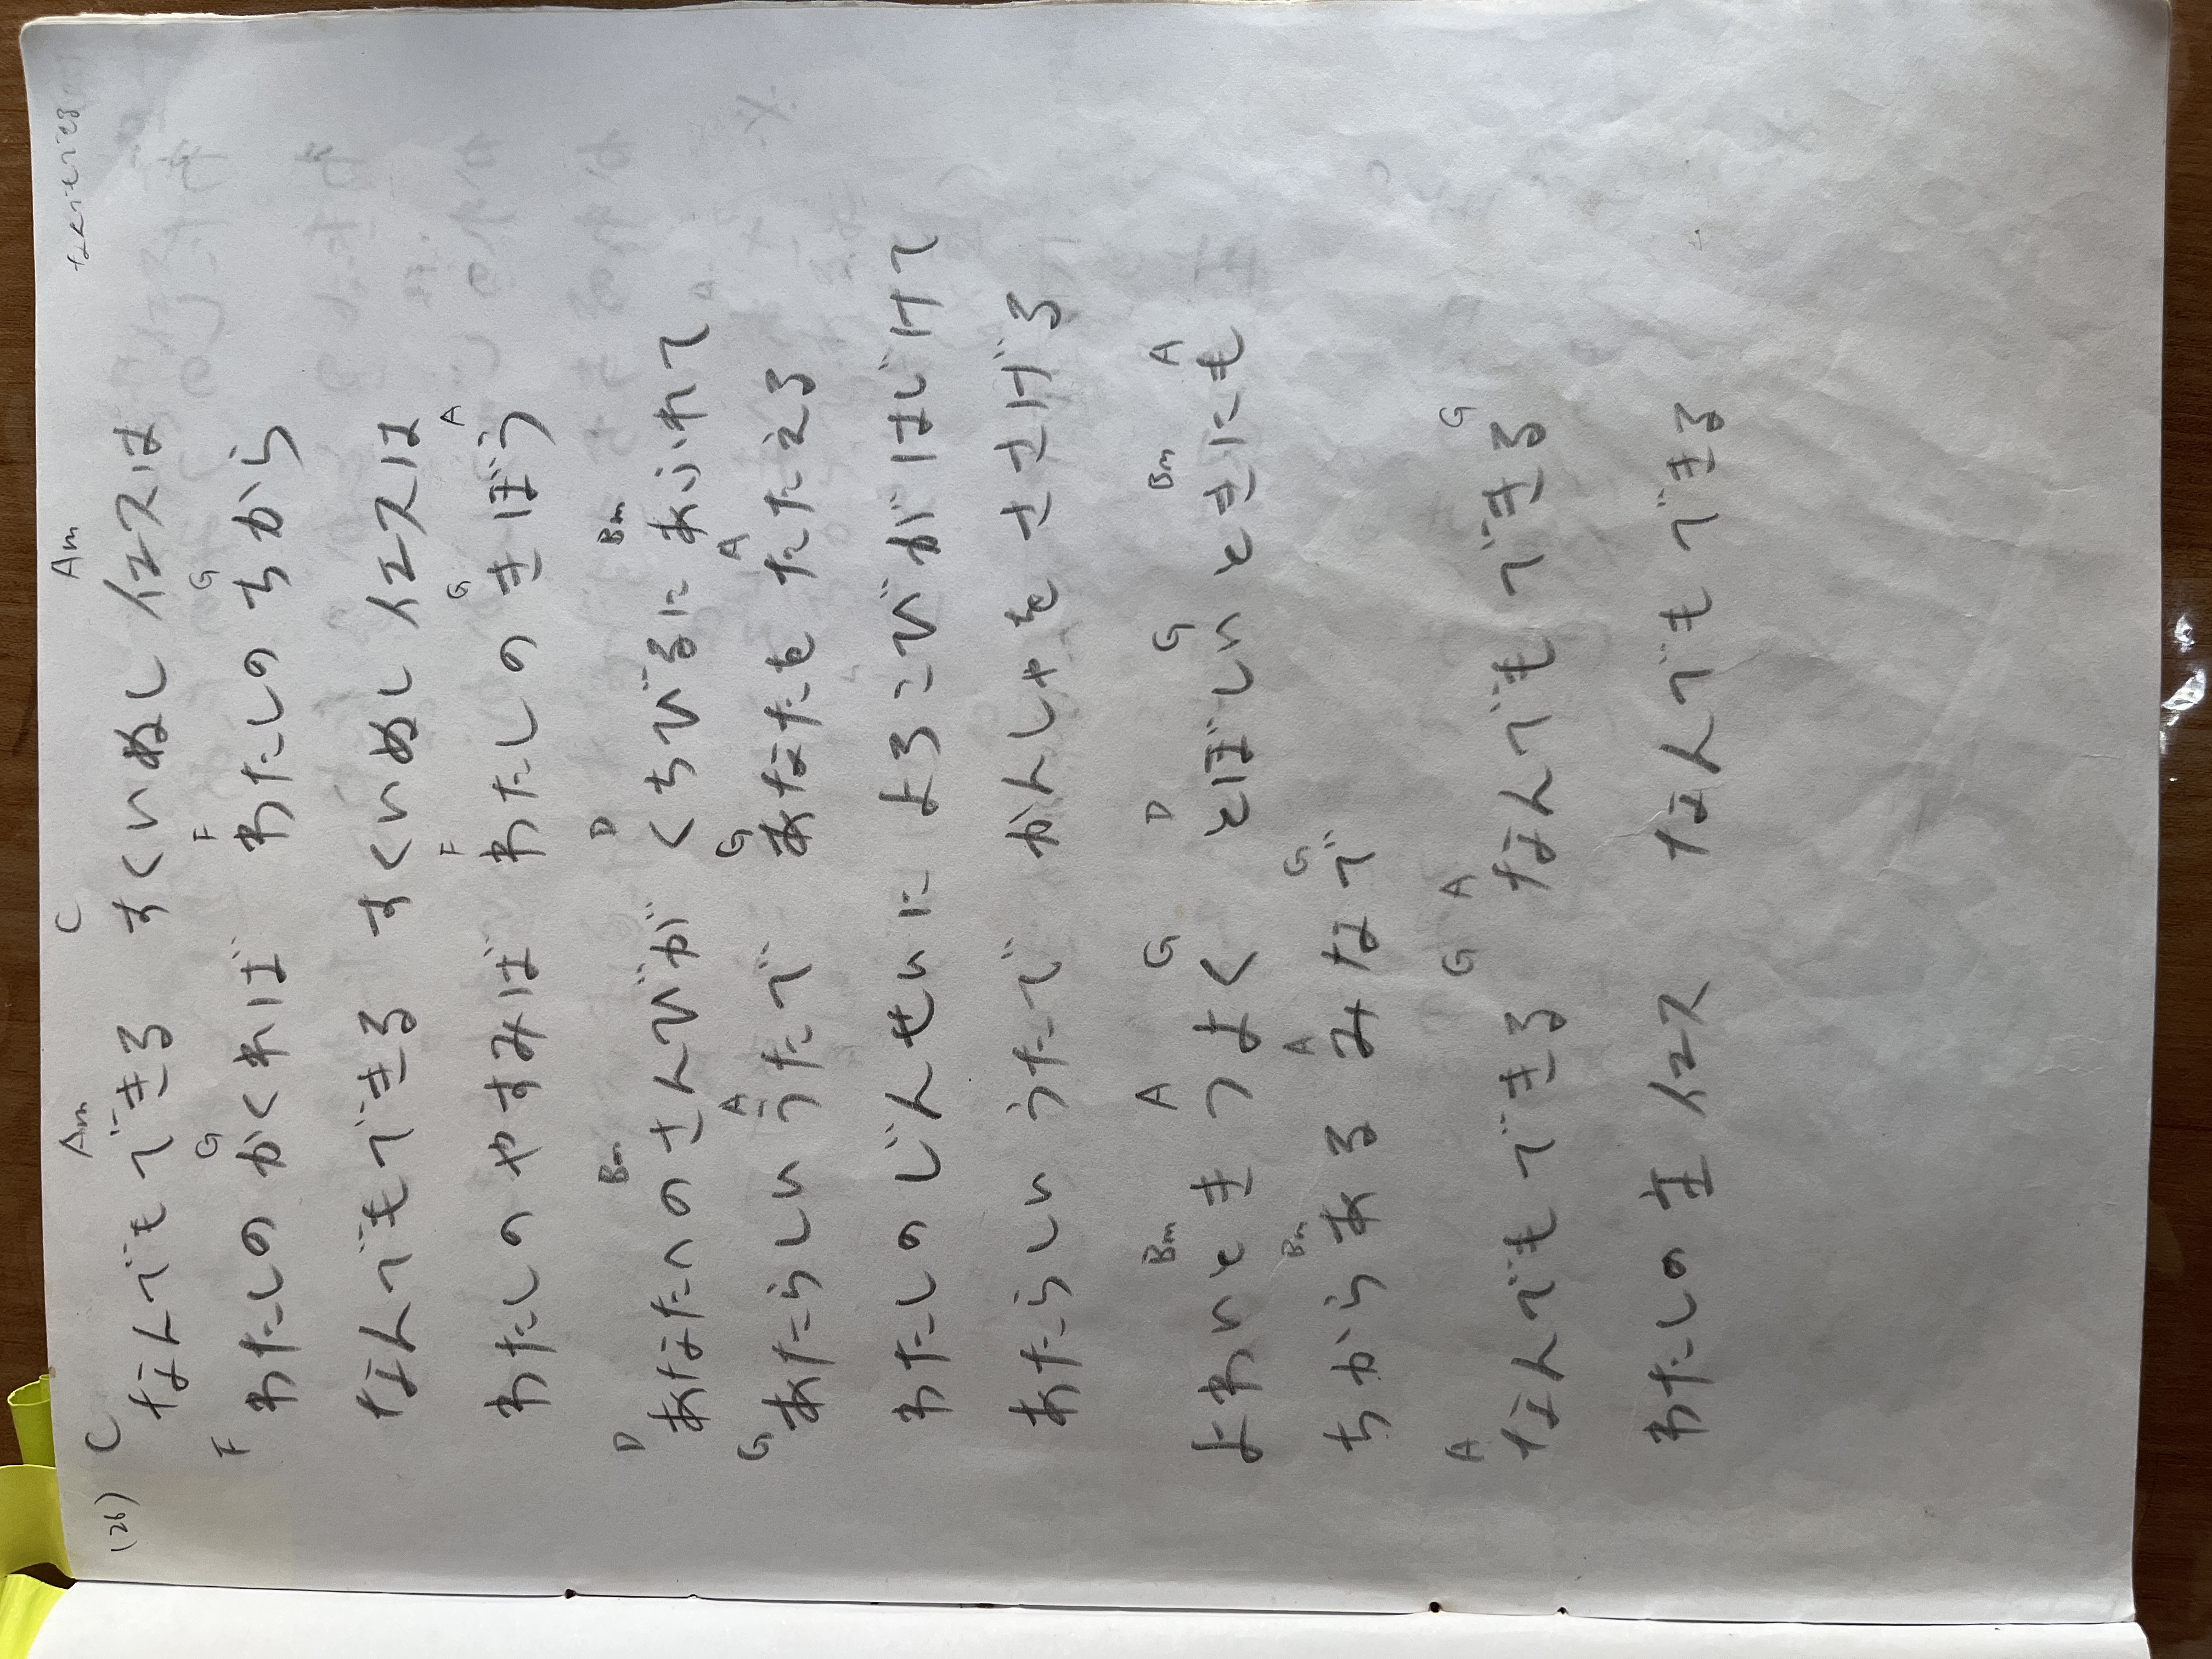 (26)
C Am C Am
なんでもできる すくいぬし イエスは
F G F G
わたしの かくれば わたしの ちから
なんでもできる すくいぬし イエスは
F G A
わたしの やすみば わたしの きぼう
D Bm D Bm
あなたへの さんびが くちびるに あふれて
G A G A
あたらしい うたで あなたを たたえる
わたしの じんせいに よろこびが はじけて
あたらしい うたで かんしゃを ささげる
Bm A G D G Bm A
よわいとき つよく とぼしいときにも
Bm A G
ちから ある みなで
A G A G
なんでもできる なんでもできる
わたしの 主 イエス なんでもできる